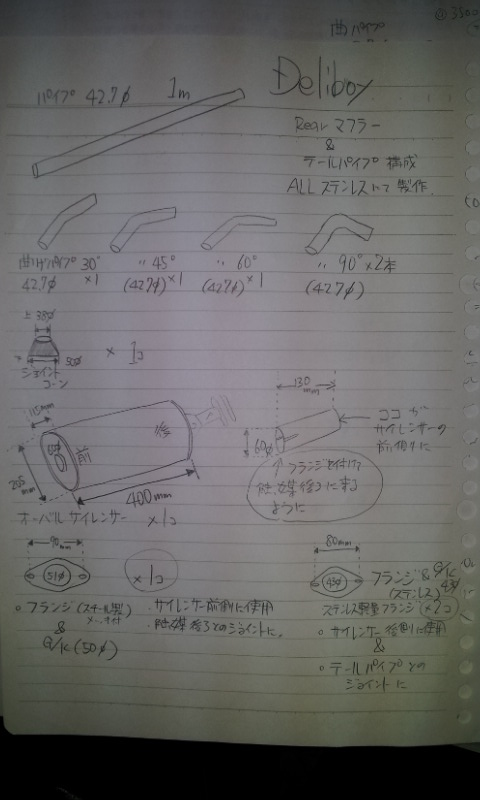 曲パイプ
@3500
Deliboy
パイプ 42.7φ 1m
Rear マフラー
&
テールパイプ 構成
ALL ステンレスにて 製作.
曲げパイプ 30° 〃 45° 〃 60° 〃 90°×2本
42.7φ ×1 (42.7φ)×1 (42.7φ)×1 (42.7φ)
上 38φ
50φ
× 1コ
ジョイント
コーン
115mm
50φ
前
後
205mm
400mm
オーバルサイレンサー ×1コ
130
mm
60φ
ココ が
サイレンサーの
前側に
フランジを付けて
触媒後ろに来る
ように
90mm
51φ
×1コ
フランジ(スチール製)
&
G/K (50φ)
・サイレンサー前側に使用
・触媒後ろとのジョイントに.
80mm
43φ
フランジ & G/K
(ステンレス) 43φ
ステンレス軽量フランジ(×2コ)
○ サイレンサー後側に使用
&
○ テールパイプとの
ジョイントに